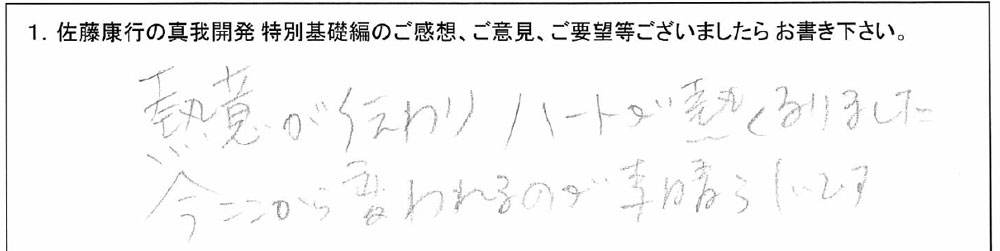 1. 佐藤康行の真我開発 特別基礎編のご感想、ご意見、ご要望等ございましたら お書き下さい。
熱意が伝わりハートが熱くなりました
今ここから変われるのが素晴らしいです